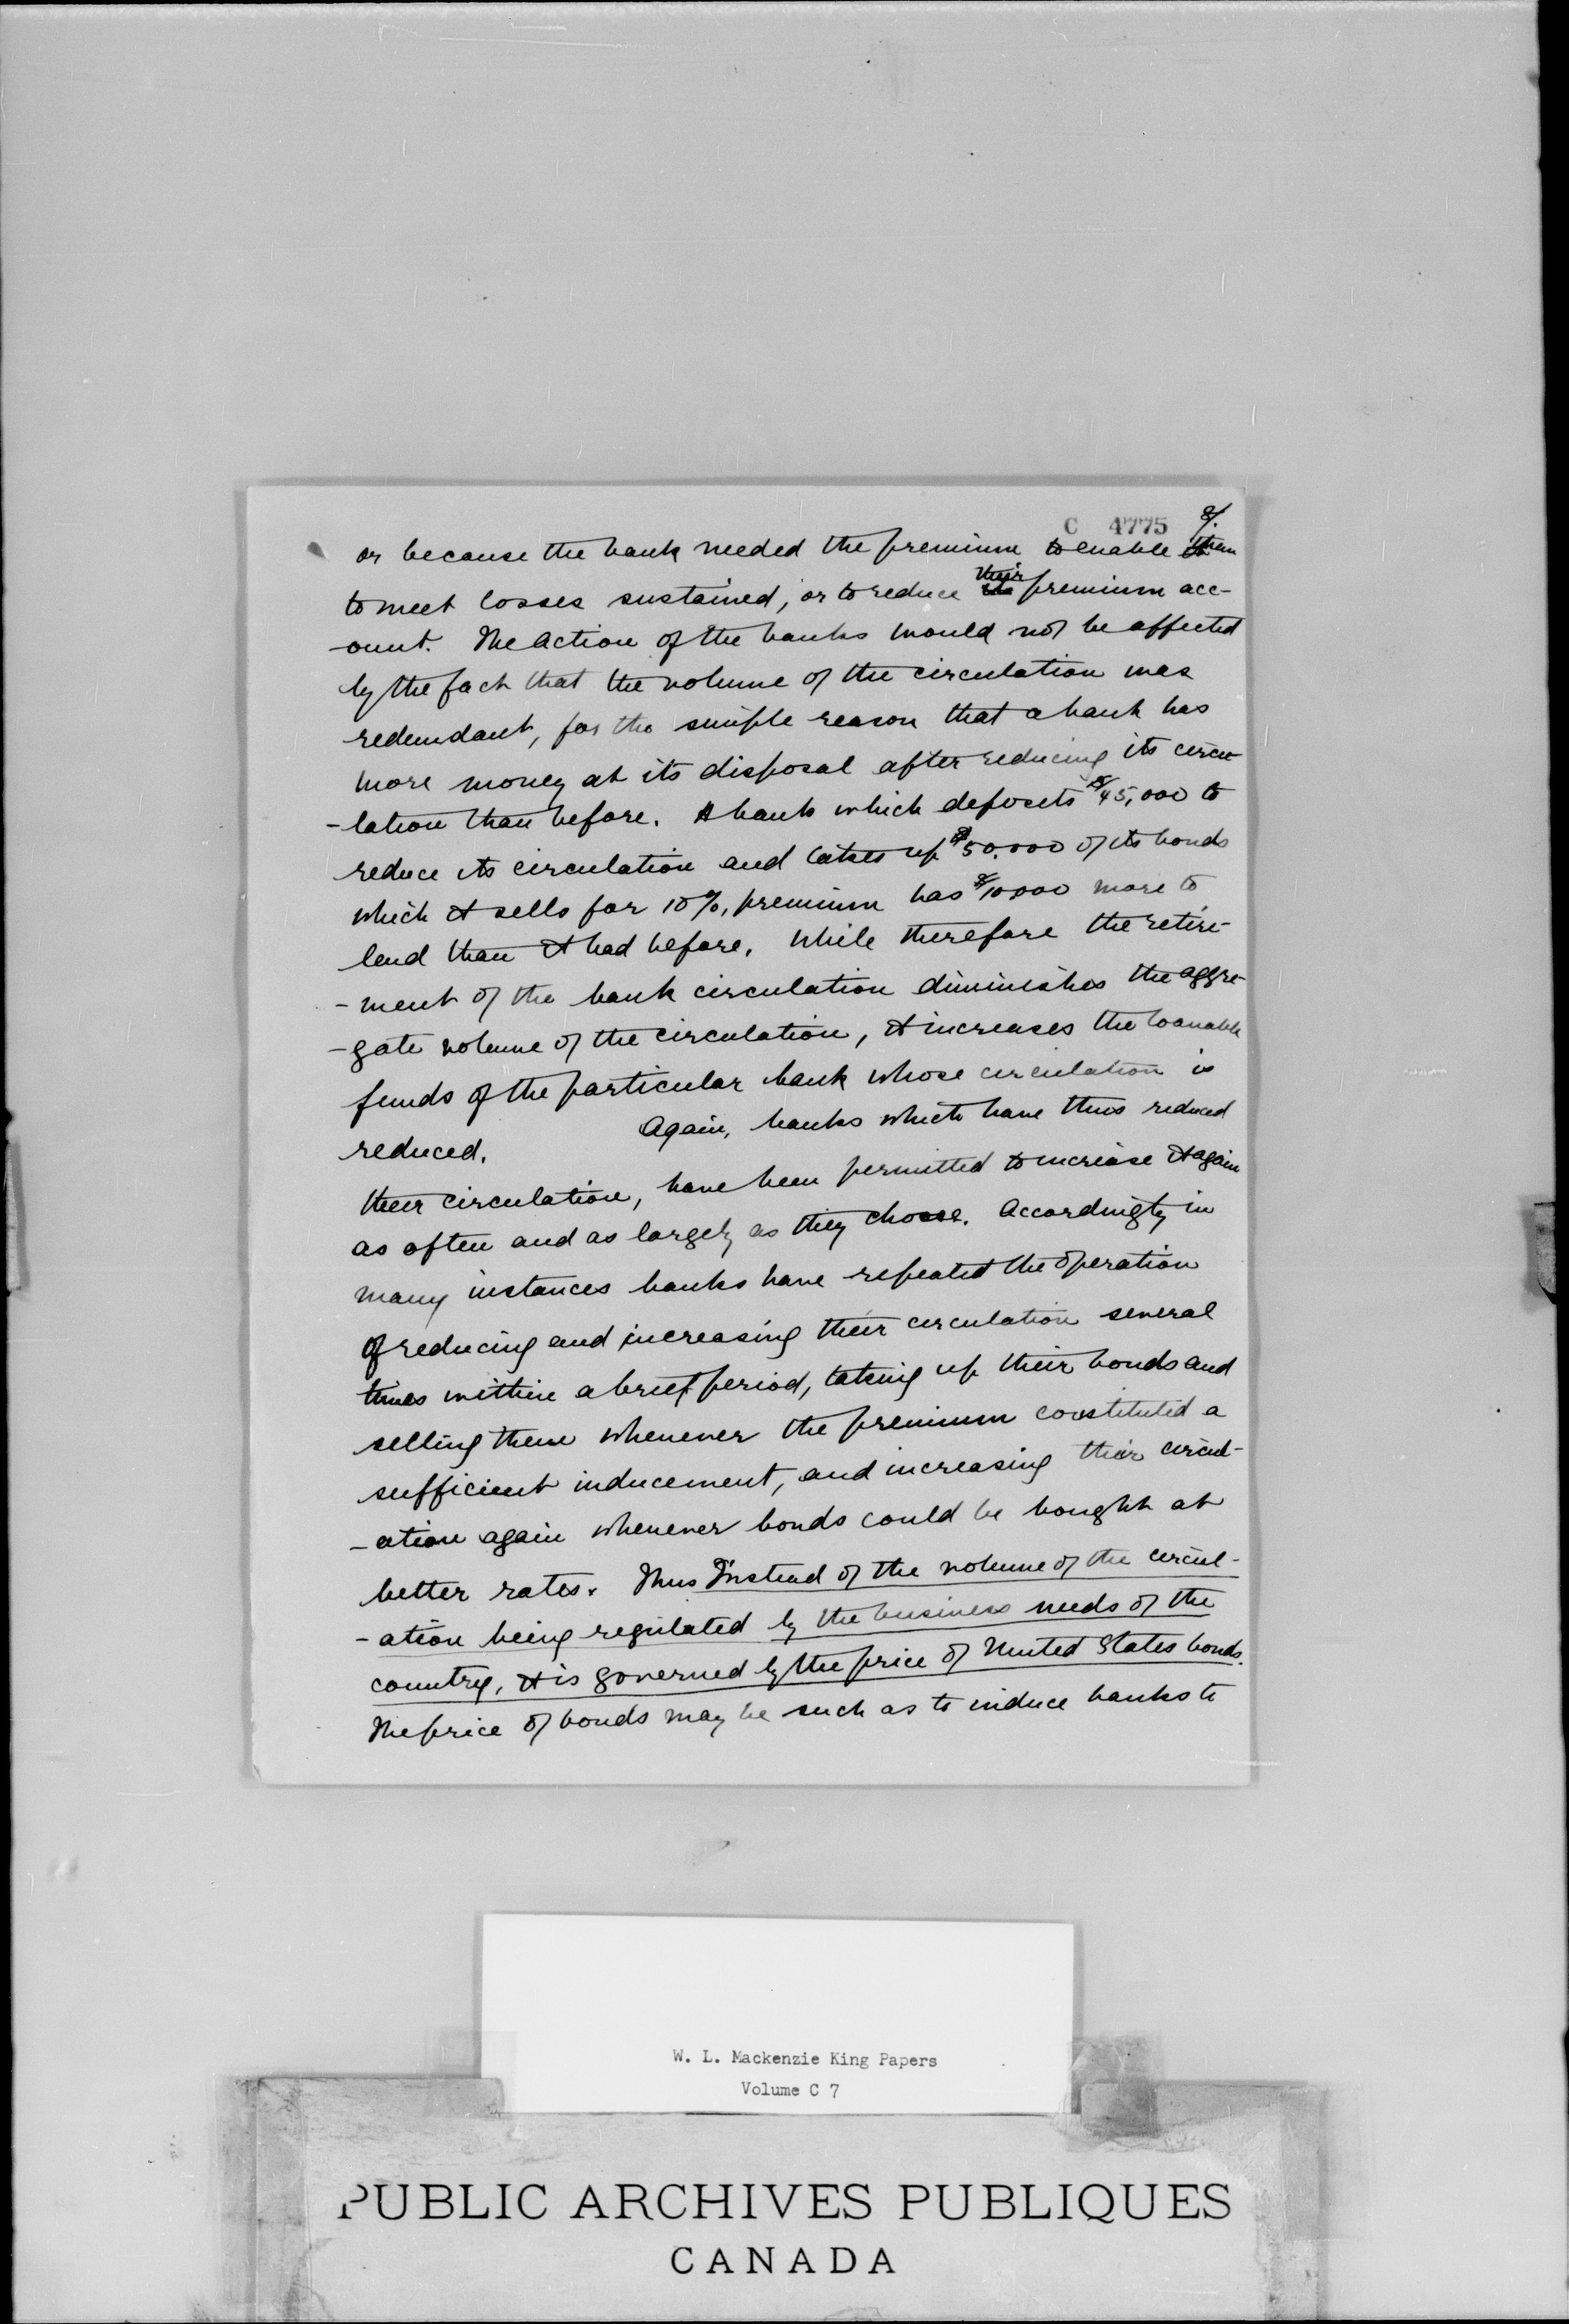 C 4775 8/.
or because the bank needed the premium to enable them
to meet losses sustained, or to reduce their premium acc-
-ount. The action of the banks would not be affected
by the fact that the volume of the circulation was
redundant, for the simple reason that a bank has
more money at its disposal after reducing its circu-
-lation than before. A bank which deposits $45,000 to
reduce its circulation and takes up $50.000 of its bonds
which it sells for 10%, premium has $10000 more to
lend than it had before. While therefore the retire-
-ment of the bank circulation diminishes the aggre-
-gate volume of the circulation, it increases the loanable
funds of the particular bank whose circulation is
reduced. Again, banks which have thus reduced
their circulation, have been permitted to increase it again
as often and as largely as they choose. Accordingly in
many instances banks have repeated the operation
of reducing and increasing their circulation several
times within a brief period, taking up their bonds and
selling them whenever the premium constituted a
sufficient inducement, and increasing their circul-
-ation again whenever bonds could be bought at
better rates. Thus Instead of the volume of the circul-
-ation being regulated by the business needs of the
country, it is governed by the price of United States bonds.
The price of bonds may be such as to induce banks to
W. L. Mackenzie King Papers
Volume C 7
PUBLIC ARCHIVES PUBLIQUES
CANADA